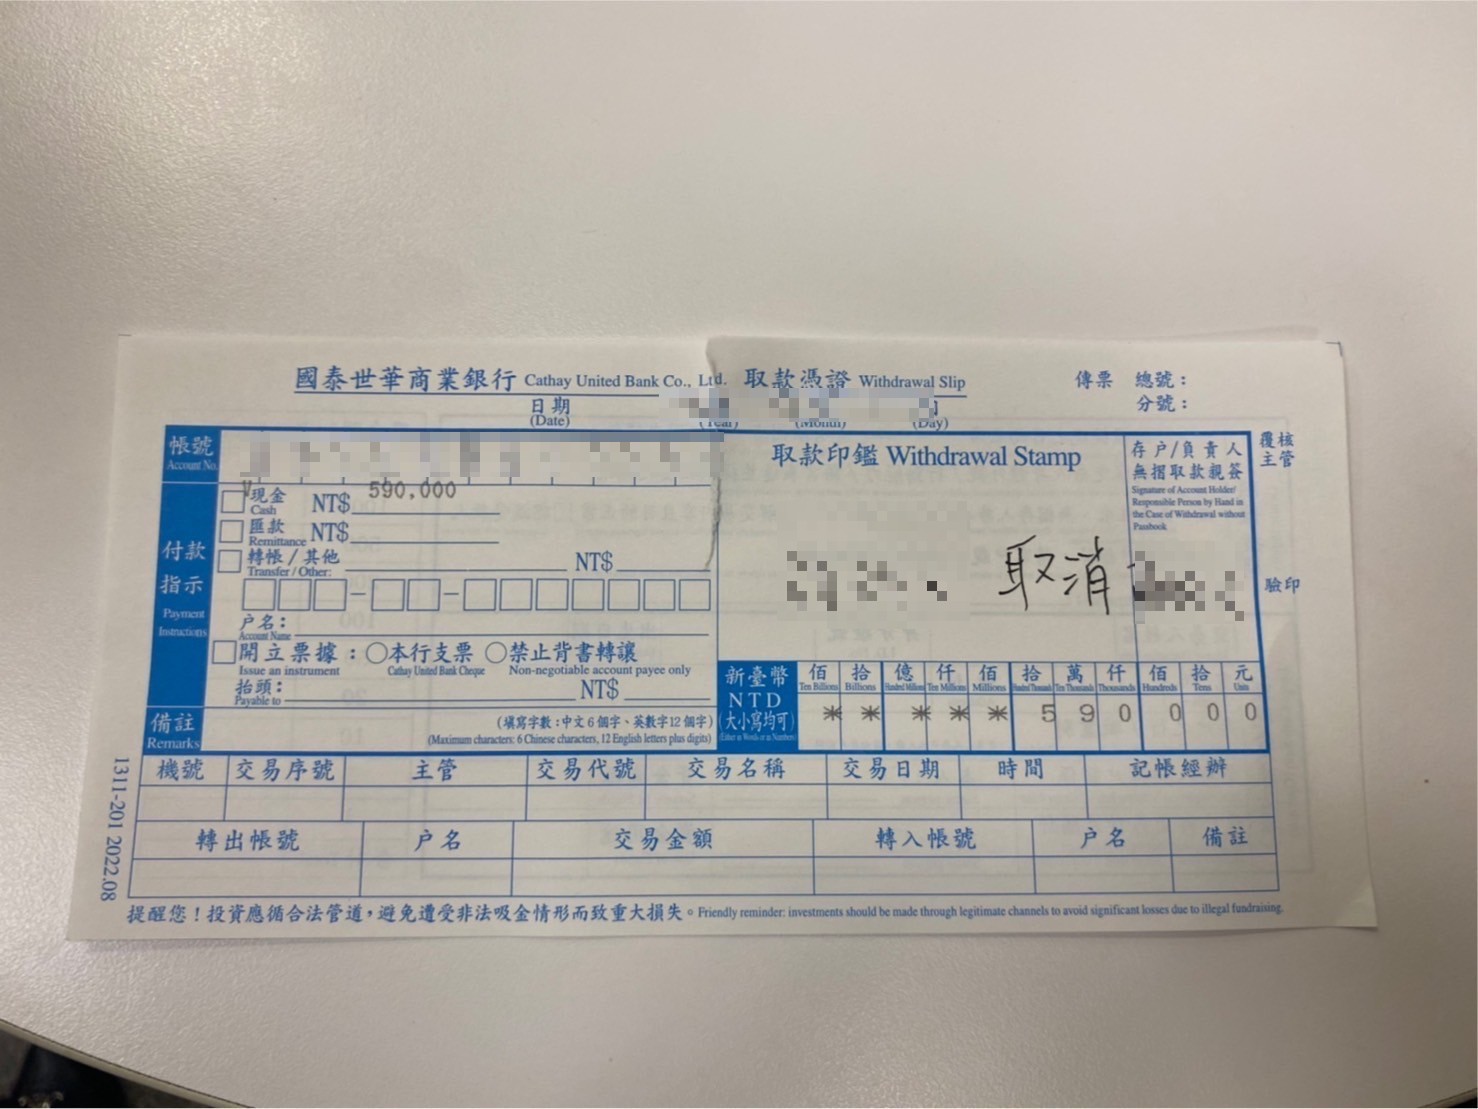 國泰世華商業銀行 Cathay United Bank Co., Ltd. 取款憑證 Withdrawal Slip
傳票 總號：
分號：
日期
(Date) (Year) (Month) (Day)
帳號
Account No.
取款印鑑 Withdrawal Stamp
存户/負責人
無摺取款親簽
Signature of Account Holder/
Responsible Person by Hand in
the Case of Withdrawal without
Passbook
覆核
主管
付款
指示
Payment
Instructions
V現金 NT$ 590,000
Cash
匯款 NT$
Remittance
轉帳/其他 NT$
Transfer / Other:
户名：
Account Name
開立票據：本行支票 禁止背書轉讓
Issue an instrument Cathay United Bank Cheque Non-negotiable account payee only
抬頭： NT$
Payable to
取消
驗印
備註
Remarks
(填寫字數：中文6個字、英數字12個字)
(Maximum characters: 6 Chinese characters, 12 English letters plus digits)
新臺幣
NTD
(大小寫均可)
(Either in Words or in Numbers)
佰 拾 億 仟 佰 拾 萬 仟 佰 拾 元
Ten Billions Billions Hundred Millions Ten Millions Millions Hundred Thousands Ten Thousands Thousands Hundreds Tens Units
* * * * * 5 9 0 0 0 0
機號 交易序號 主管 交易代號 交易名稱 交易日期 時間 記帳經辦
轉出帳號 户名 交易金額 轉入帳號 户名 備註
提醒您！投資應循合法管道，避免遭受非法吸金情形而致重大損失。Friendly reminder: investments should be made through legitimate channels to avoid significant losses due to illegal fundraising.
1311-201 2022.08